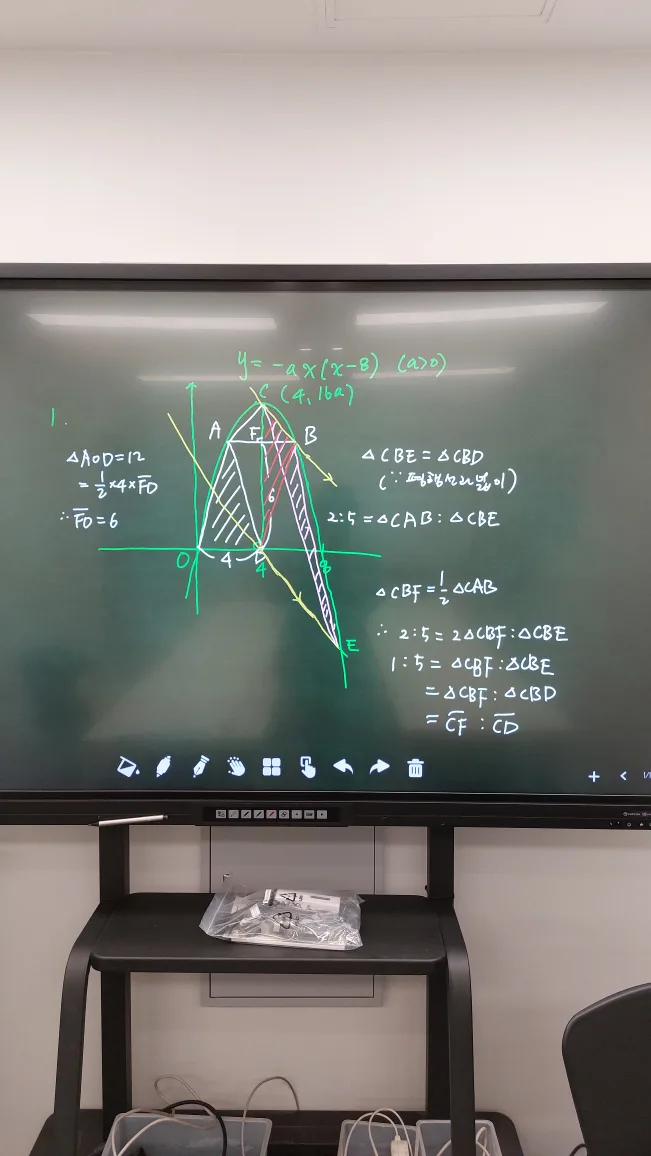 y = -ax(x-8) (a>0)
C (4, 16a)
1.
A
F
B
△AOD=12
= 1/2 × 4 × F̅D̅
∴ F̅D̅ = 6
6
O
4
D
4
8
E
△CBE = △CBD
(∵ 평행선과 넓이)
2:5 = △CAB : △CBE
△CBF = 1/2 △CAB
∴ 2:5 = 2△CBF : △CBE
1:5 = △CBF : △CBE
= △CBF : △CBD
= C̅F̅ : C̅D̅